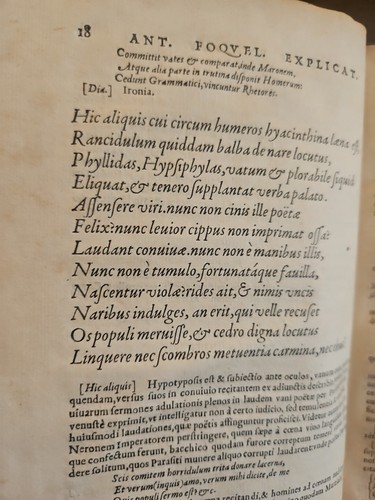 18 ANT. FOQVEL. EXPLICAT.
Committit vates & comparat, inde Maronem,
Atque alia parte in trutina disponit Homerum:
Cedunt Grammatici, vincuntur Rhetores.
[Dia.] Ironia.
Hic aliquis cui circum humeros hyacinthina læna
Rancidulum quiddam balba de nare locutus,
Phyllidas, Hypsiphylas, vatum & plorabile siquid
Eliquat, & tenero supplantat verba palato.
Assensere viri. nunc non cinis ille poëtæ
Felix? nunc leuior cippus non imprimat ossa?
Laudant conuiuæ. nunc non è manibus illis,
Nunc non è tumulo, fortunatáque fauilla,
Nascentur violæ? rides ait, & nimis vncis
Naribus indulges, an erit, qui velle recuset
Os populi meruisse, & cedro digna locutus
Linquere nec scombros metuentia carmina, nec
[Hic aliquis] Hypotyposis est & subiectio ante oculos,
quendam, versus suos in conuiuio recitantem ex adiunctis
uiuarum sermones adulationis plenos in laudem vani poëtæ
venustè exprimit, vt intelligatur non à certo iudicio, sed
huiusmodi laudationes, quæ poëtis affinguntur proficisci.
Neronem Imperatorem perstringere, quum sæpe à cœna vino
que confectum ferunt, bacchico quodam furore correptum
dere solitum, quos Parasiti munere aliquo corrupti laudarent
Scis comitem horridulum trita donare lacerna,
Et verum (inquis) amo, verum mihi dicite, de me